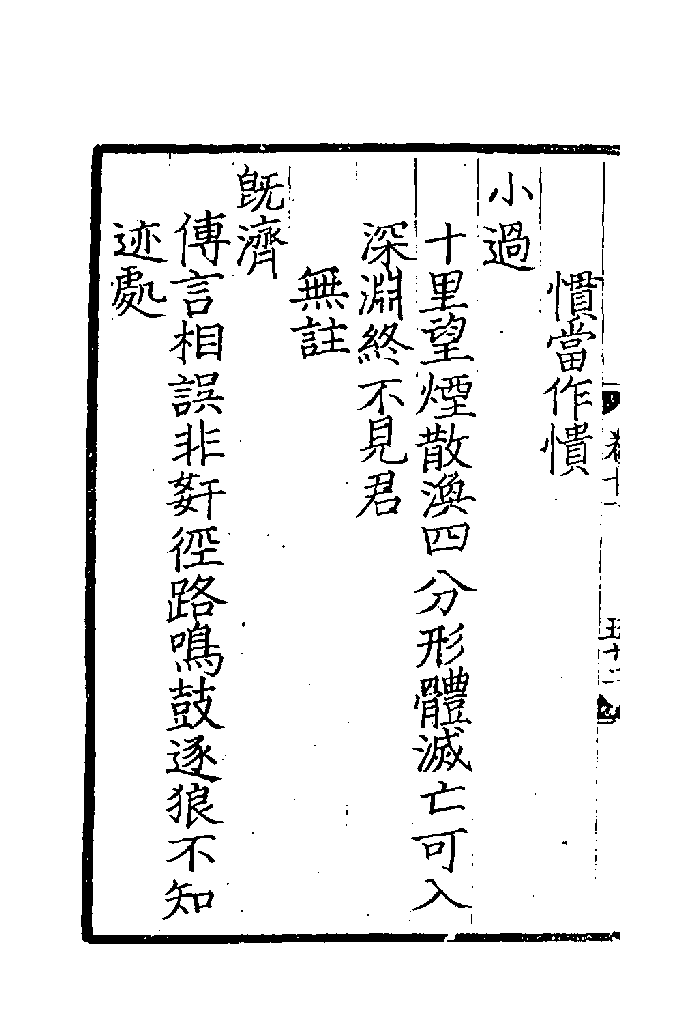 慣當作憒
小過
十里望煙散渙四分形體滅亡可入
深淵終不見君
無註
旣濟
傳言相誤非姧徑路鳴鼓逐狼不知
迹處
卷十一
五十二